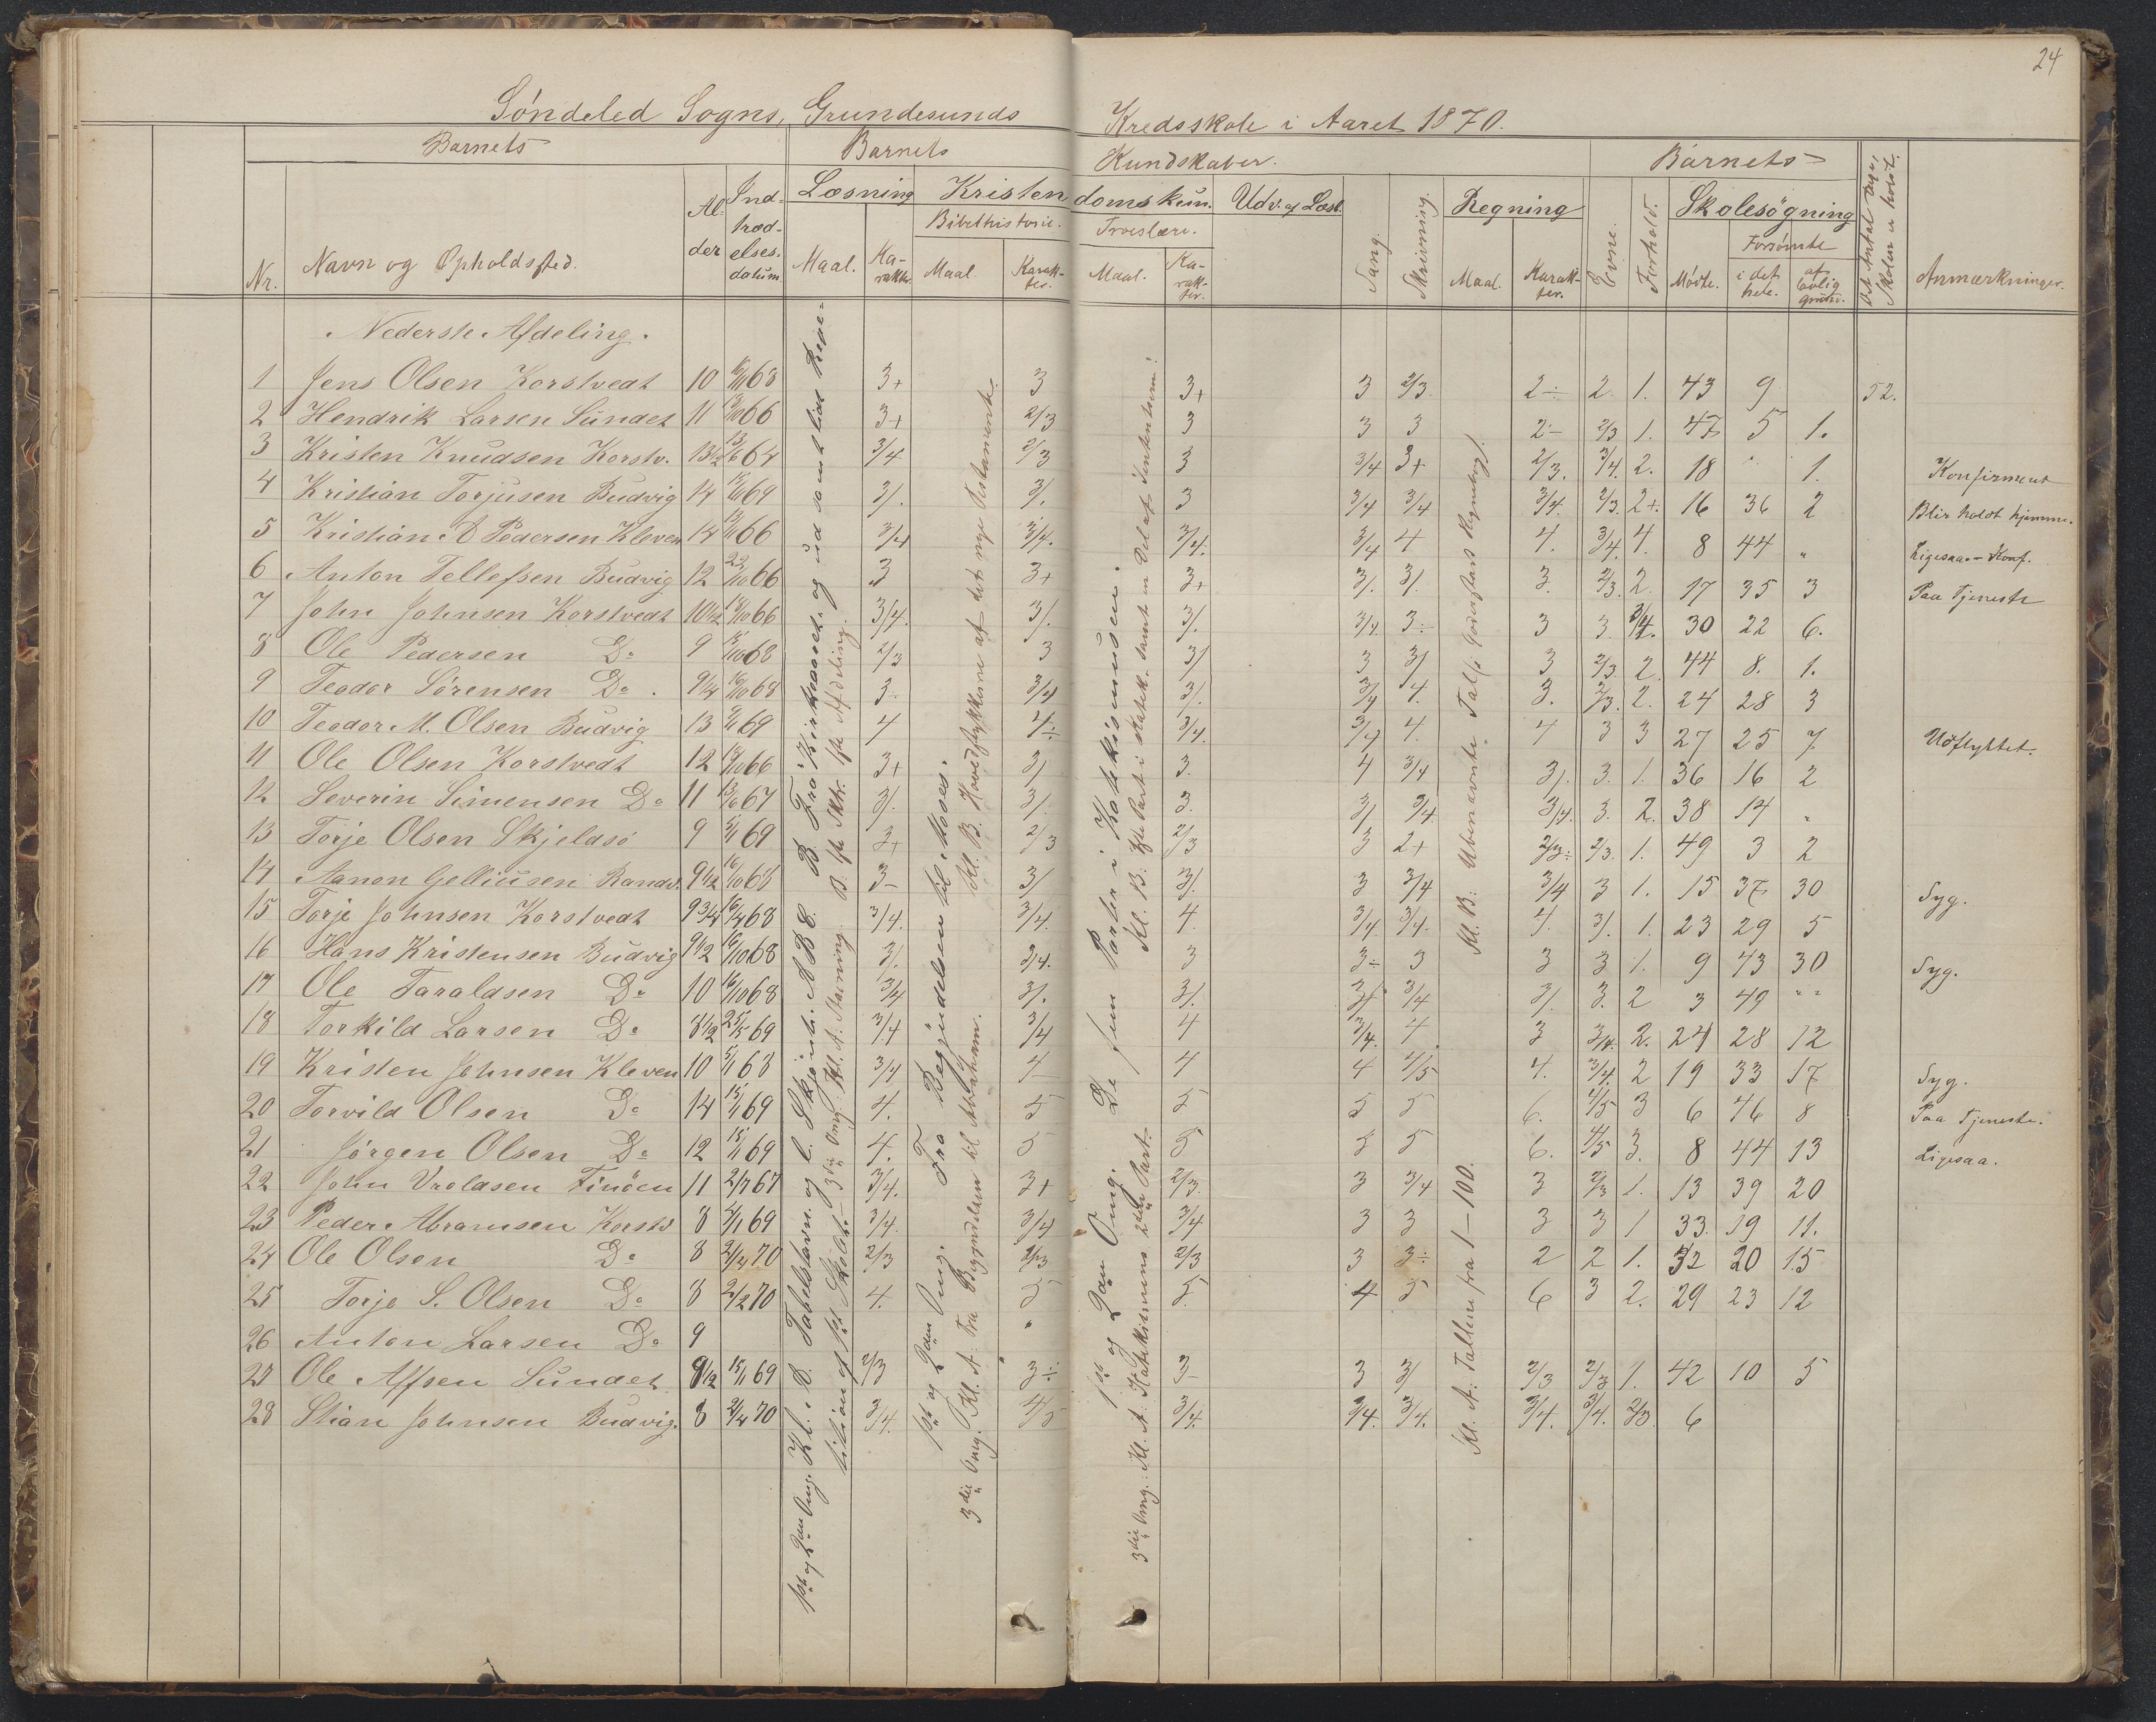 24
Söndeled Sogns, Grundesunds Kredsskole i Aaret 1870.
Barnets Barnets Kundskaber. Barnets
Nr. Navn og Opholdssted. Alder Indtrædelsesdatum Læsning Kristendomskun. Udv. af Læsb. Sang. Skrivning. Regning Evne. Forhold. Skolesøgning Det Antal Dage, Skolen er holdt. Anmærkninger.
Maal. Karakter. Bibelhistorie. Troeslære. Maal. Karakter. Mødte. Forsømte
Maal. Karakter. Maal. Karakter. i det hele. af lovlig grund.
Nederste Afdeling.
1 Jens Olsen Korstvedt 10 63 3+ 3 3+ 3 2/3 2÷ 2. 1. 43 9 52.
2 Hendrik Larsen Sundet 11 66 3+ 2/3 3 3 3 2- 2/3 1. 47 5 1.
3 Kristen Knudsen Korstv. 13½ 64 3/4 2/3 3 3/4 3+ 2/3. 3/4. 2. 18 " 1. Konfirmeret
4 Kristian Torjusen Budvig 14 69 3/. 3/. 3 3/4 3/4 3/4. 2/3. 2+. 16 36 2 Blir holdt hjemme.
5 Kristian A Pedersen Kleven 14 66 3/4 3/4. 3/4. 3/4 4 4. 3/4. 4. 8 44 " Ligesaa - Konf.
6 Anton Tellefsen Budvig 12 66 3 3+ 3+ 3/. 3/. 3. 2/3. 2. 17 35 3 Paa Tjeneste
7 John Johnsen Korstvedt 10½ 66 3/4. 3/. 3/. 3/4. 3÷ 3 3. 3/4. 30 22 6.
8 Ole Pedersen Do 9 68 2/3 3 3/ 3 3/ 3 2/3. 2. 44 8. 1.
9 Teodor Sörensen Do. 9¼ 68 3. 3/4 3/. 3/4 4. 3. 2/3. 2. 24 28 3
10 Teodor M. Olsen Budvig 13 69 4 4÷ 3/4. 3/4 4. 4 3 3 27 25 7 Udflyttet.
11 Ole Olsen Korstvedt 12 66 3+ 3/ 3. 4 3/4 3/. 3. 1. 36 16 2
12 Severin Simensen Do 11 67 3/. 3/. 3. 3/ 3/4 3/4. 3. 2. 38 14 "
13 Torje Olsen Skjeldsö 9 69 3+ 2/3 2/3 3 2+ 2/3÷ 2/3. 1. 49 3 2
14 Aanon Gelliusen Randv. 9½ 68 3- 3/ 3/. 3 3/4 3/4 3 1. 15 37 30 Syg.
15 Torje Johnsen Korstvedt 9¾ 68 3/4. 3/4. 4. 3/4. 3/4. 4. 3/. 1. 23 29 5
16 Hans Kristensen Budvig 9½ 68 3/. 3/4. 3 3÷ 3 3 3 1. 9 43 30 Syg.
17 Ole Taraldsen Do 10 68 3/4 3/. 3/. 3/ 3/4 3/. 3. 2 3 49 " "
18 Torkild Larsen Do 8½ 69 3/4 3/4 4 3/4. 4. 3 3/4. 2. 24 28 12
19 Kristen Johnsen Kleven 10 68 3/4 4 4 4 4/5 4. 3/4. 2 19 33 17 Syg.
20 Torvild Olsen Do 14 69 4. 5 5 5 5 6. 4/5 3 6 46 8 Paa Tjeneste.
21 Jörgen Olsen Do 12 69 4. 5 5 5 5 6. 4/5 3. 8 44 13 Ligesaa.
22 John Vroldsen Finöen 11 67 3/4. 3+ 2/3. 3 3/4 3 2/3 1. 13 39 20
23 Peder Abramsen Korstv 8 69 3/4. 3/4 3/4 3 3 3 3 1 33 19 11.
24 Ole Olsen Do 8 70 2/3 2/3 2/3 3 3÷ 2 2 1. 32 20 15
25 Torje S. Olsen Do 8 70 4. 5 5. 4 5 6 3 2. 29 23 12
26 Anton Larsen Do 9
27 Ole Alfsen Sundet 8½ 69 2/3 3÷ 3- 3 3/ 2/3 2/3 1. 42 10 5
28 Stian Johnsen Budvig. 8 70 3/4. 4/5 3/4. 3/4. 3/4. 3/4. 3/4. 2/3. 6
1ste og 2den Omg. Kl. B. Tabelstavn. og l. Skjönh. ABC. B. Fra Kirkeaaret og ud samt lidt Repetition af
3die Omg. Kl. A: Stavning. B. 1ste Skr. 1ste Afdeling.
1ste og 2den Omg. Fra Begyndelsen til Moses.
3die Omg. Kl. A: Fra Begyndelsen til Abraham. Kl. B. Hovedstykkerne af det nye Testamente.
1ste og 2den Omg. De fem Parter i Katekismusen.
3die Omg. Kl. A: Katekismens 2den Part. Kl. B: 1ste Part i Katek. samt en Del af
Kl. A: Tallene fra 1 - 100. Kl. B: Ubenævnte Tal